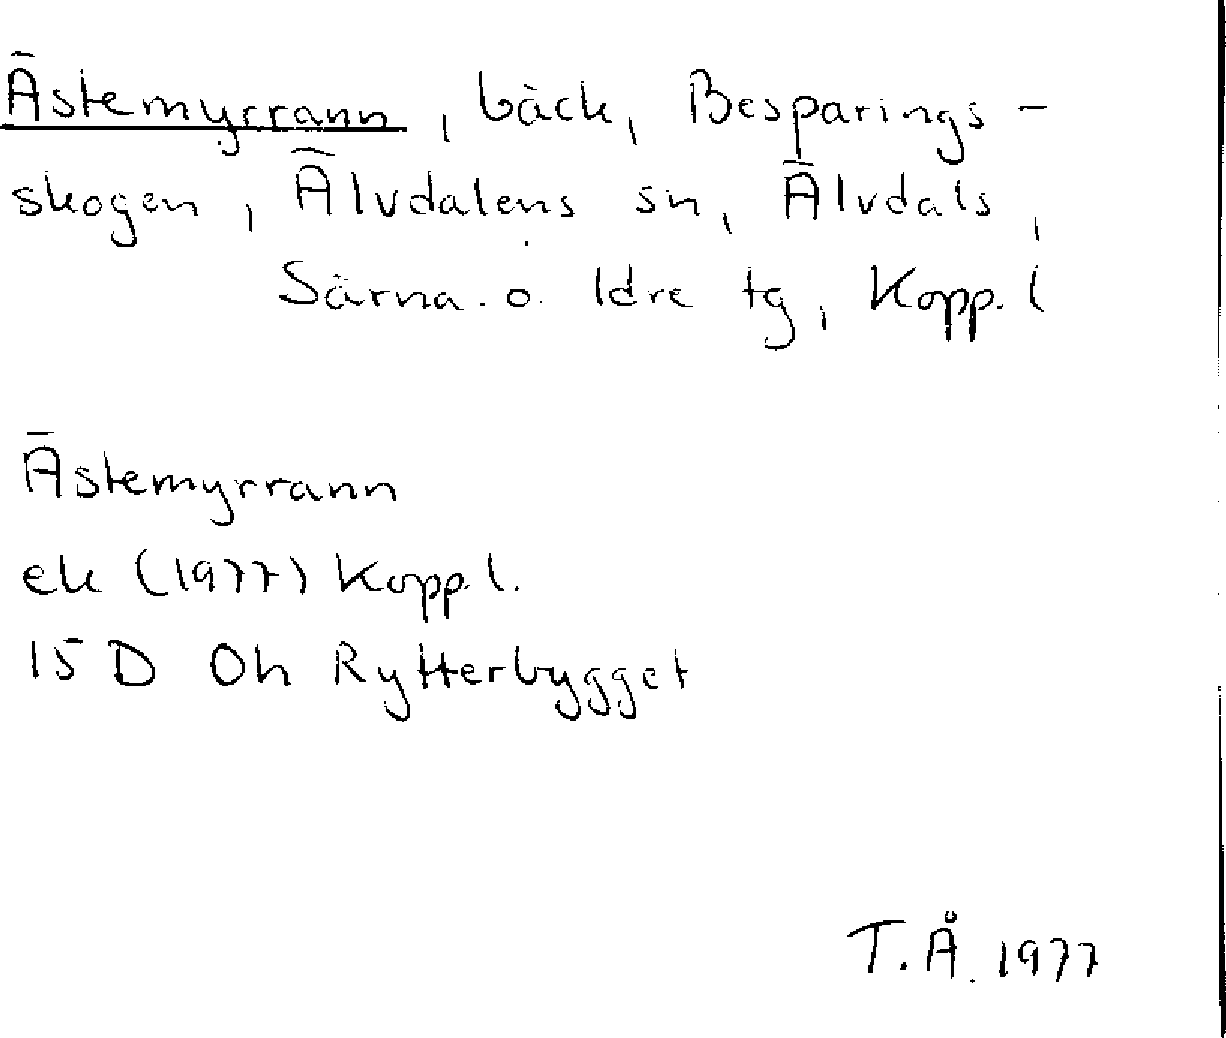 Ästemyrrann, bäck, Besparings-
skogen, Älvdalens sn, Älvdals,
Särna o. Idre tg, Kopp. l
Ästemyrrann
ek (1977) Kopp l.
15 D 0h Rytterbygget
T.Å. 1977